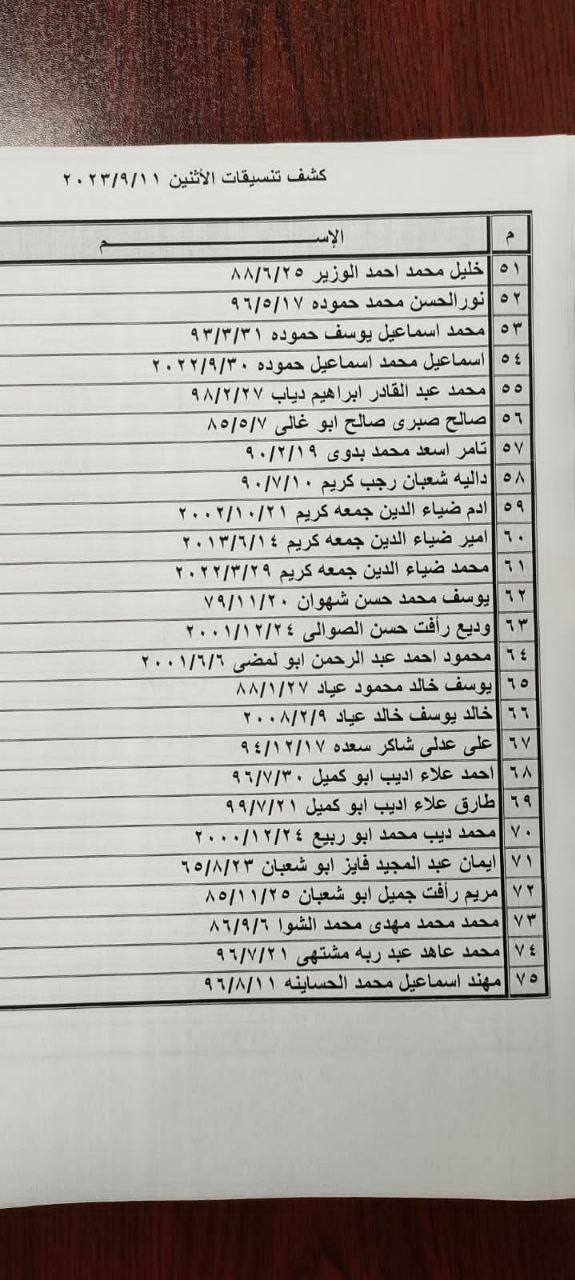 كشف تنسيقات الأثنين ٢٠٢٣/٩/١١
م الإســــــــم
٥١ خليل محمد احمد الوزير ٨٨/٦/٢٥
٥٢ نورالحسن محمد حموده ٩٦/٥/١٧
٥٣ محمد اسماعيل يوسف حموده ٩٣/٣/٣١
٥٤ اسماعيل محمد اسماعيل حموده ٢٠٢٢/٩/٣٠
٥٥ محمد عبد القادر ابراهيم دياب ٩٨/٢/٢٧
٥٦ صالح صبرى صالح ابو غالى ٨٥/٥/٧
٥٧ تامر اسعد محمد بدوى ٩٠/٢/١٩
٥٨ داليه شعبان رجب كريم ٩٠/٧/١٠
٥٩ ادم ضياء الدين جمعه كريم ٢٠٠٢/١٠/٢١
٦٠ امير ضياء الدين جمعه كريم ٢٠١٣/٦/١٤
٦١ محمد ضياء الدين جمعه كريم ٢٠٢٢/٣/٢٩
٦٢ يوسف محمد حسن شهوان ٧٩/١١/٢٠
٦٣ وديع رأفت حسن الصوالى ٢٠٠١/١٢/٢٤
٦٤ محمود احمد عبد الرحمن ابو لمضى ٢٠٠١/٦/٦
٦٥ يوسف خالد محمود عياد ٨٨/١/٢٧
٦٦ خالد يوسف خالد عياد ٢٠٠٨/٢/٩
٦٧ على عدلى شاكر سعده ٩٤/١٢/١٧
٦٨ احمد علاء اديب ابو كميل ٩٦/٧/٣٠
٦٩ طارق علاء اديب ابو كميل ٩٩/٧/٢١
٧٠ محمد ديب محمد ابو ربيع ٢٠٠٠/١٢/٢٤
٧١ ايمان عبد المجيد فايز ابو شعبان ٦٥/٨/٢٣
٧٢ مريم رأفت جميل ابو شعبان ٨٥/١١/٢٥
٧٣ محمد محمد مهدى محمد الشوا ٨٦/٩/٦
٧٤ محمد عاهد عبد ربه مشتهى ٩٦/٧/٢١
٧٥ مهند اسماعيل محمد الحساينه ٩٦/٨/١١